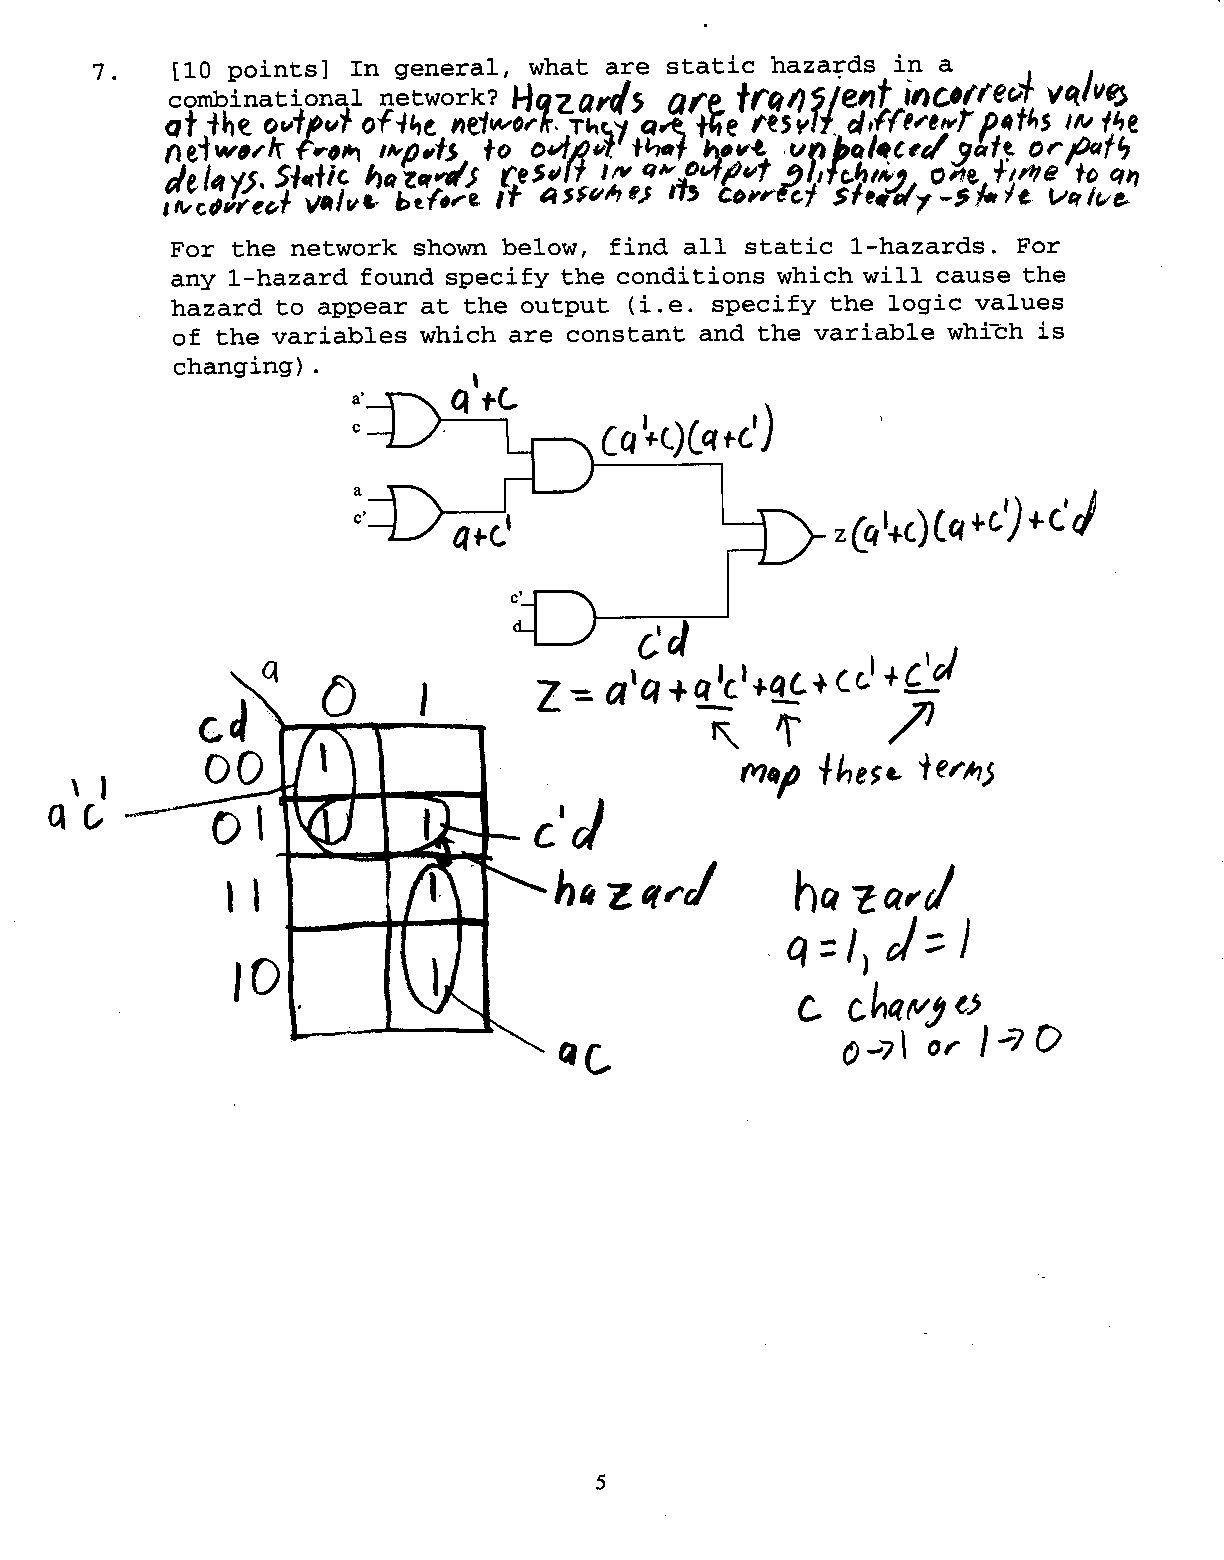 7. [10 points] In general, what are static hazards in a
combinational network? Hazards are transient incorrect values
at the output of the network. They are the result different paths in the
network from inputs to output that have unbalaced gate or path
delays. Static hazards result in an output glitching one time to an
incorrect value before it assumes its correct steady-state value
For the network shown below, find all static 1-hazards. For
any 1-hazard found specify the conditions which will cause the
hazard to appear at the output (i.e. specify the logic values
of the variables which are constant and the variable which is
changing).
a' a'+c
c (a'+c)(a+c')
a
c' a+c' z(a'+c)(a+c')+c'd
c'
d c'd
a Z = a'a+a'c'+ac+cc'+c'd
cd 0 1
00 1 map these terms
a'c'
01 1 1 c'd
11 1 hazard hazard
a=1, d=1
10 1 c changes
0→1 or 1→0
ac
5